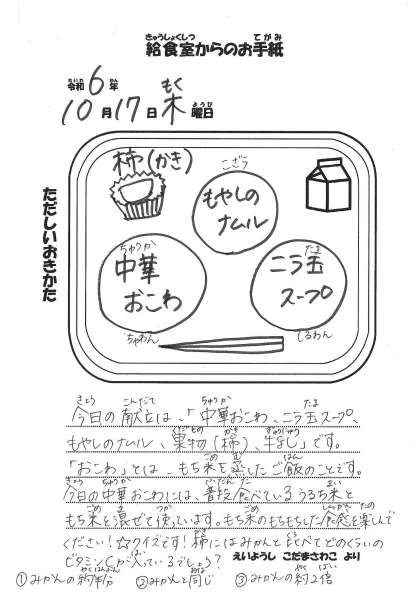 給食室からのお手紙
令和6年
10月17日木曜日
ただしいおきかた
柿(かき)
こざら
もやしの
ナムル
ちゅうか
中華
おこわ
ちゃわん
たま
ニラ玉
スープ
しるわん
今日の献立は、「中華おこわ、ニラ玉スープ、
もやしのナムル、果物(柿)、牛乳」です。
「おこわ」とは、もち米を蒸したご飯のことです。
今日の中華おこわには、普段食べているうるち米と
もち米を混ぜて使っています。もち米のもちもちした食感を楽しんで
ください!☆クイズです!柿にはみかんと比べてどのくらいの
ビタミンCが入っているでしょう?
えいようし こだまさわこ より
①みかんの約半分 ②みかんと同じ ③みかんの約2倍